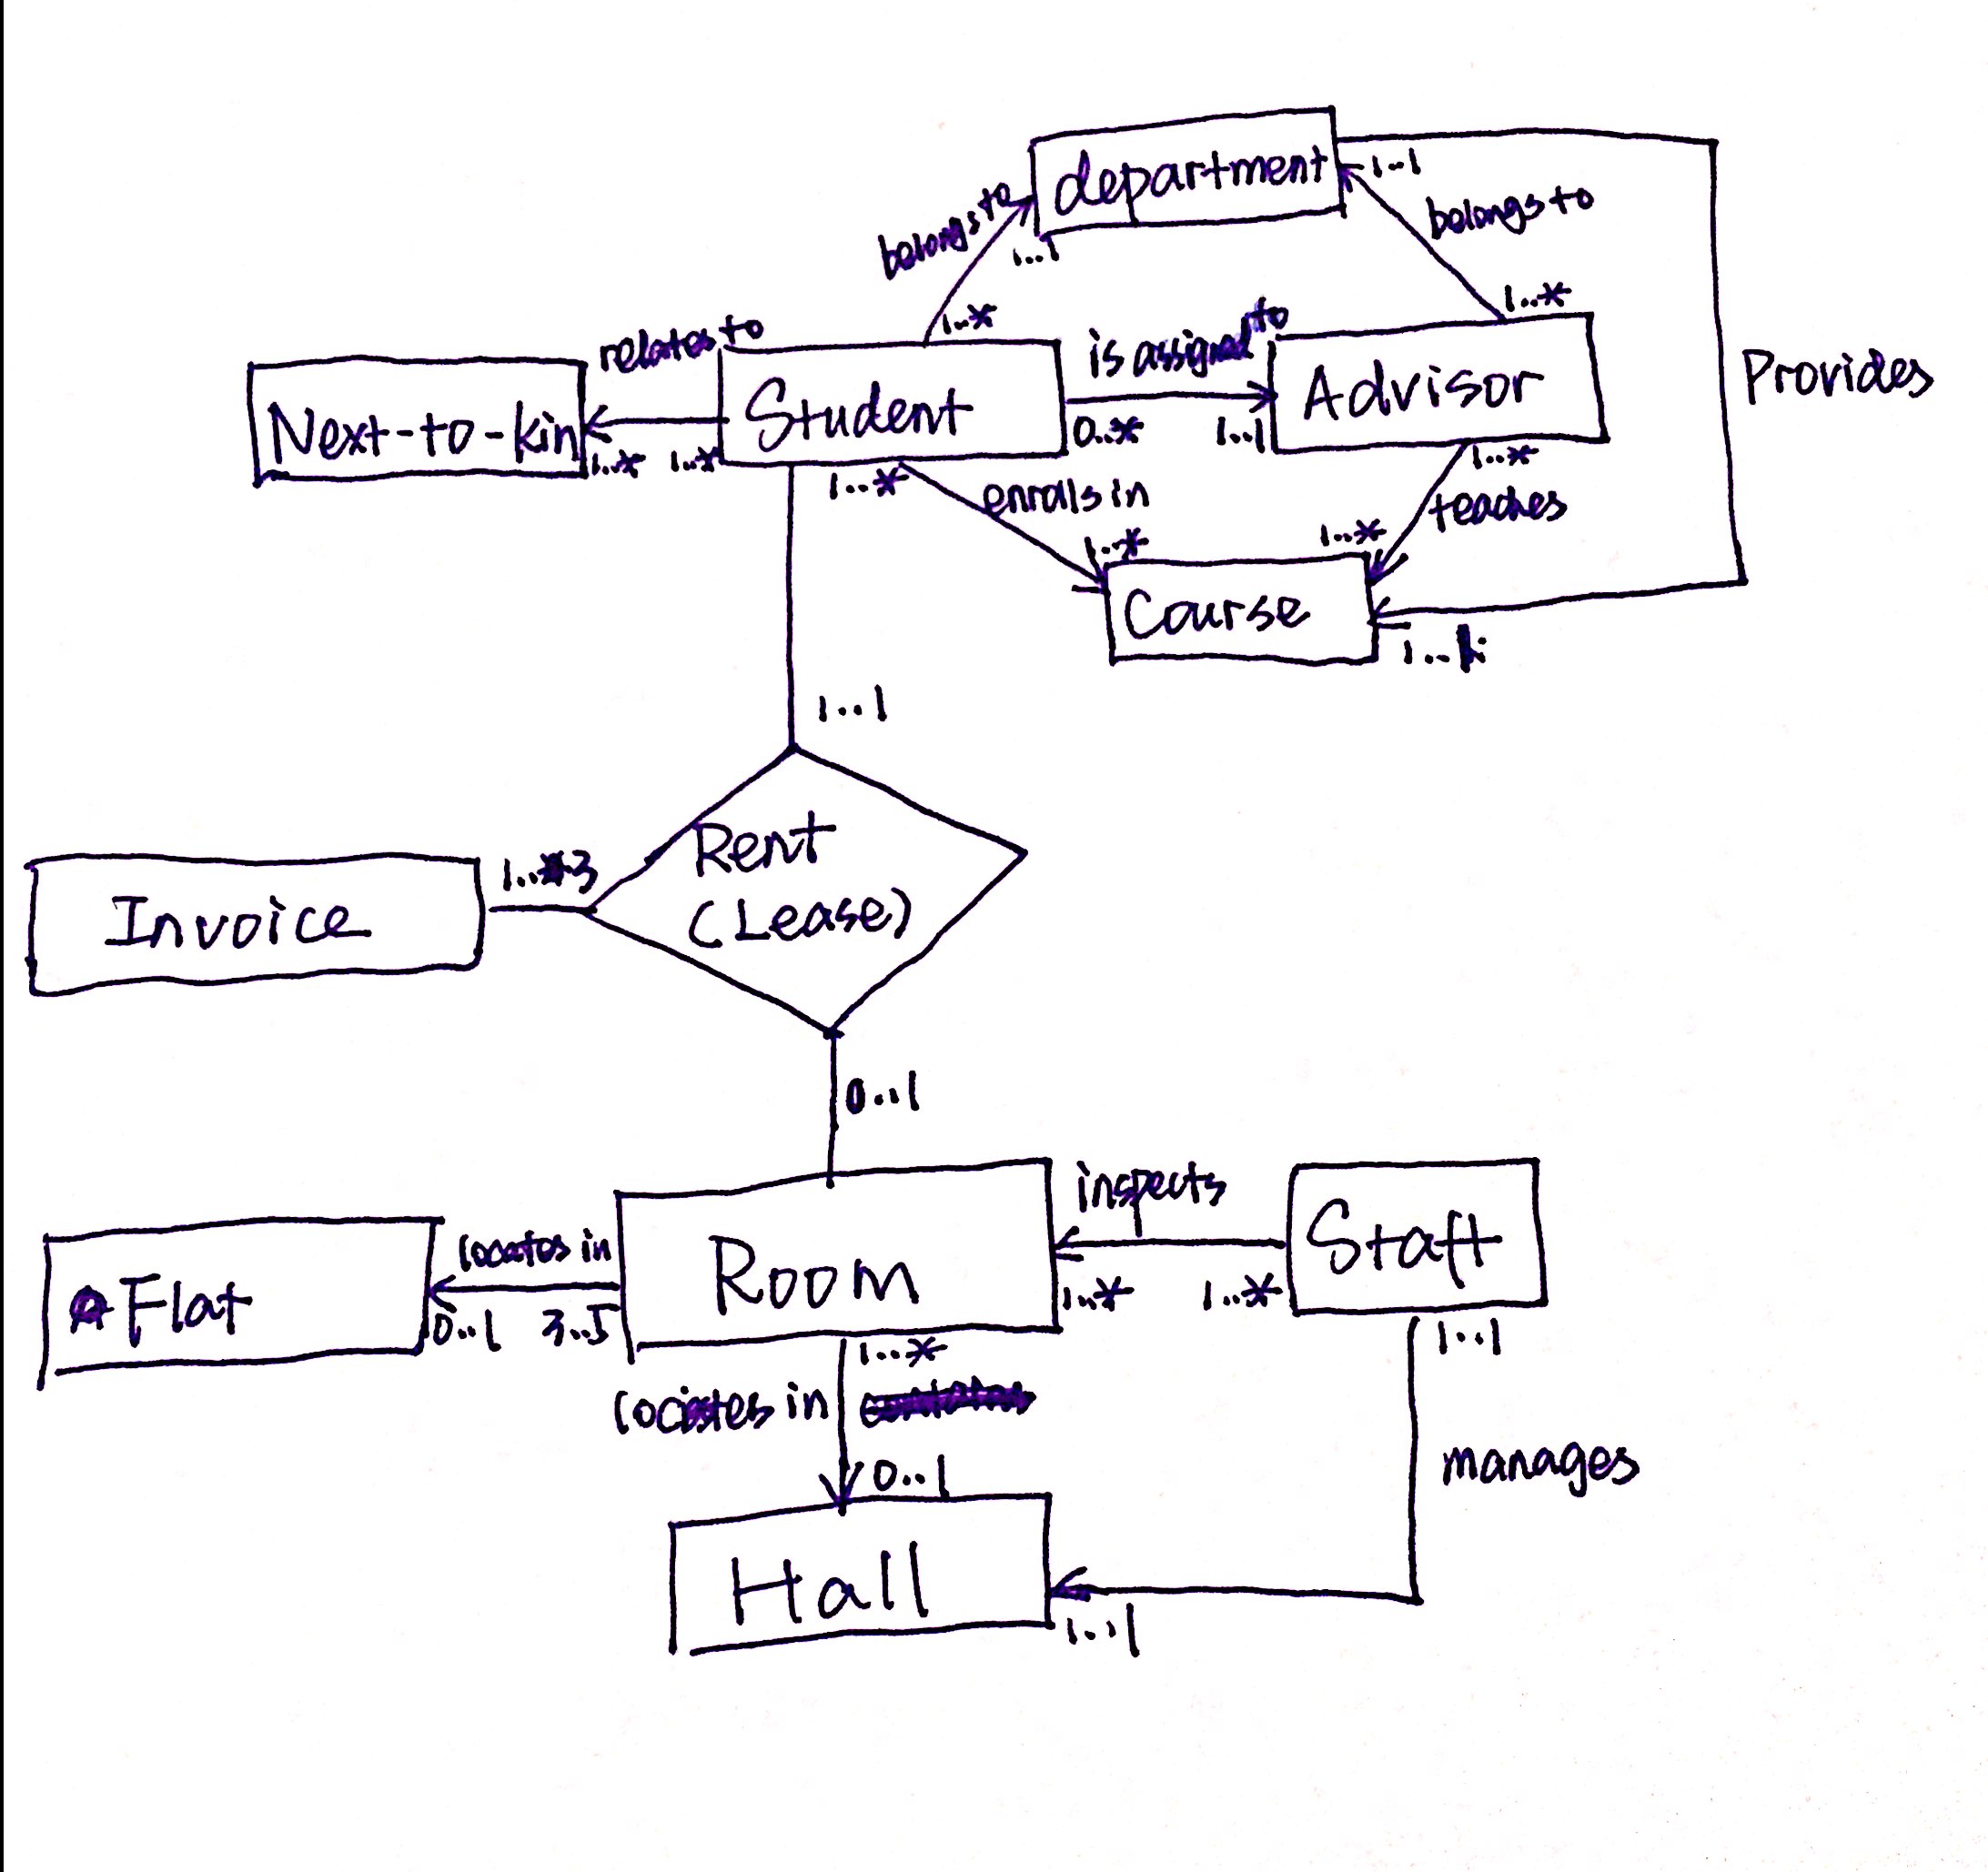 department
1..1
belongs to
belongs to
1...1
1..*
1..*
relates to
is assigned to
Next-to-kin
Student
Advisor
Provides
0..*
1..1
1..*
1..*
1..*
1...*
enrolls in
teaches
1..*
1..*
Course
1...
1...1
Rent
(Lease)
1..3
Invoice
0...1
inspects
Staff
locates in
Room
Flat
0..1
3..5
1..*
1..*
1...1
1...*
locates in
manages
0..1
Hall
1...1